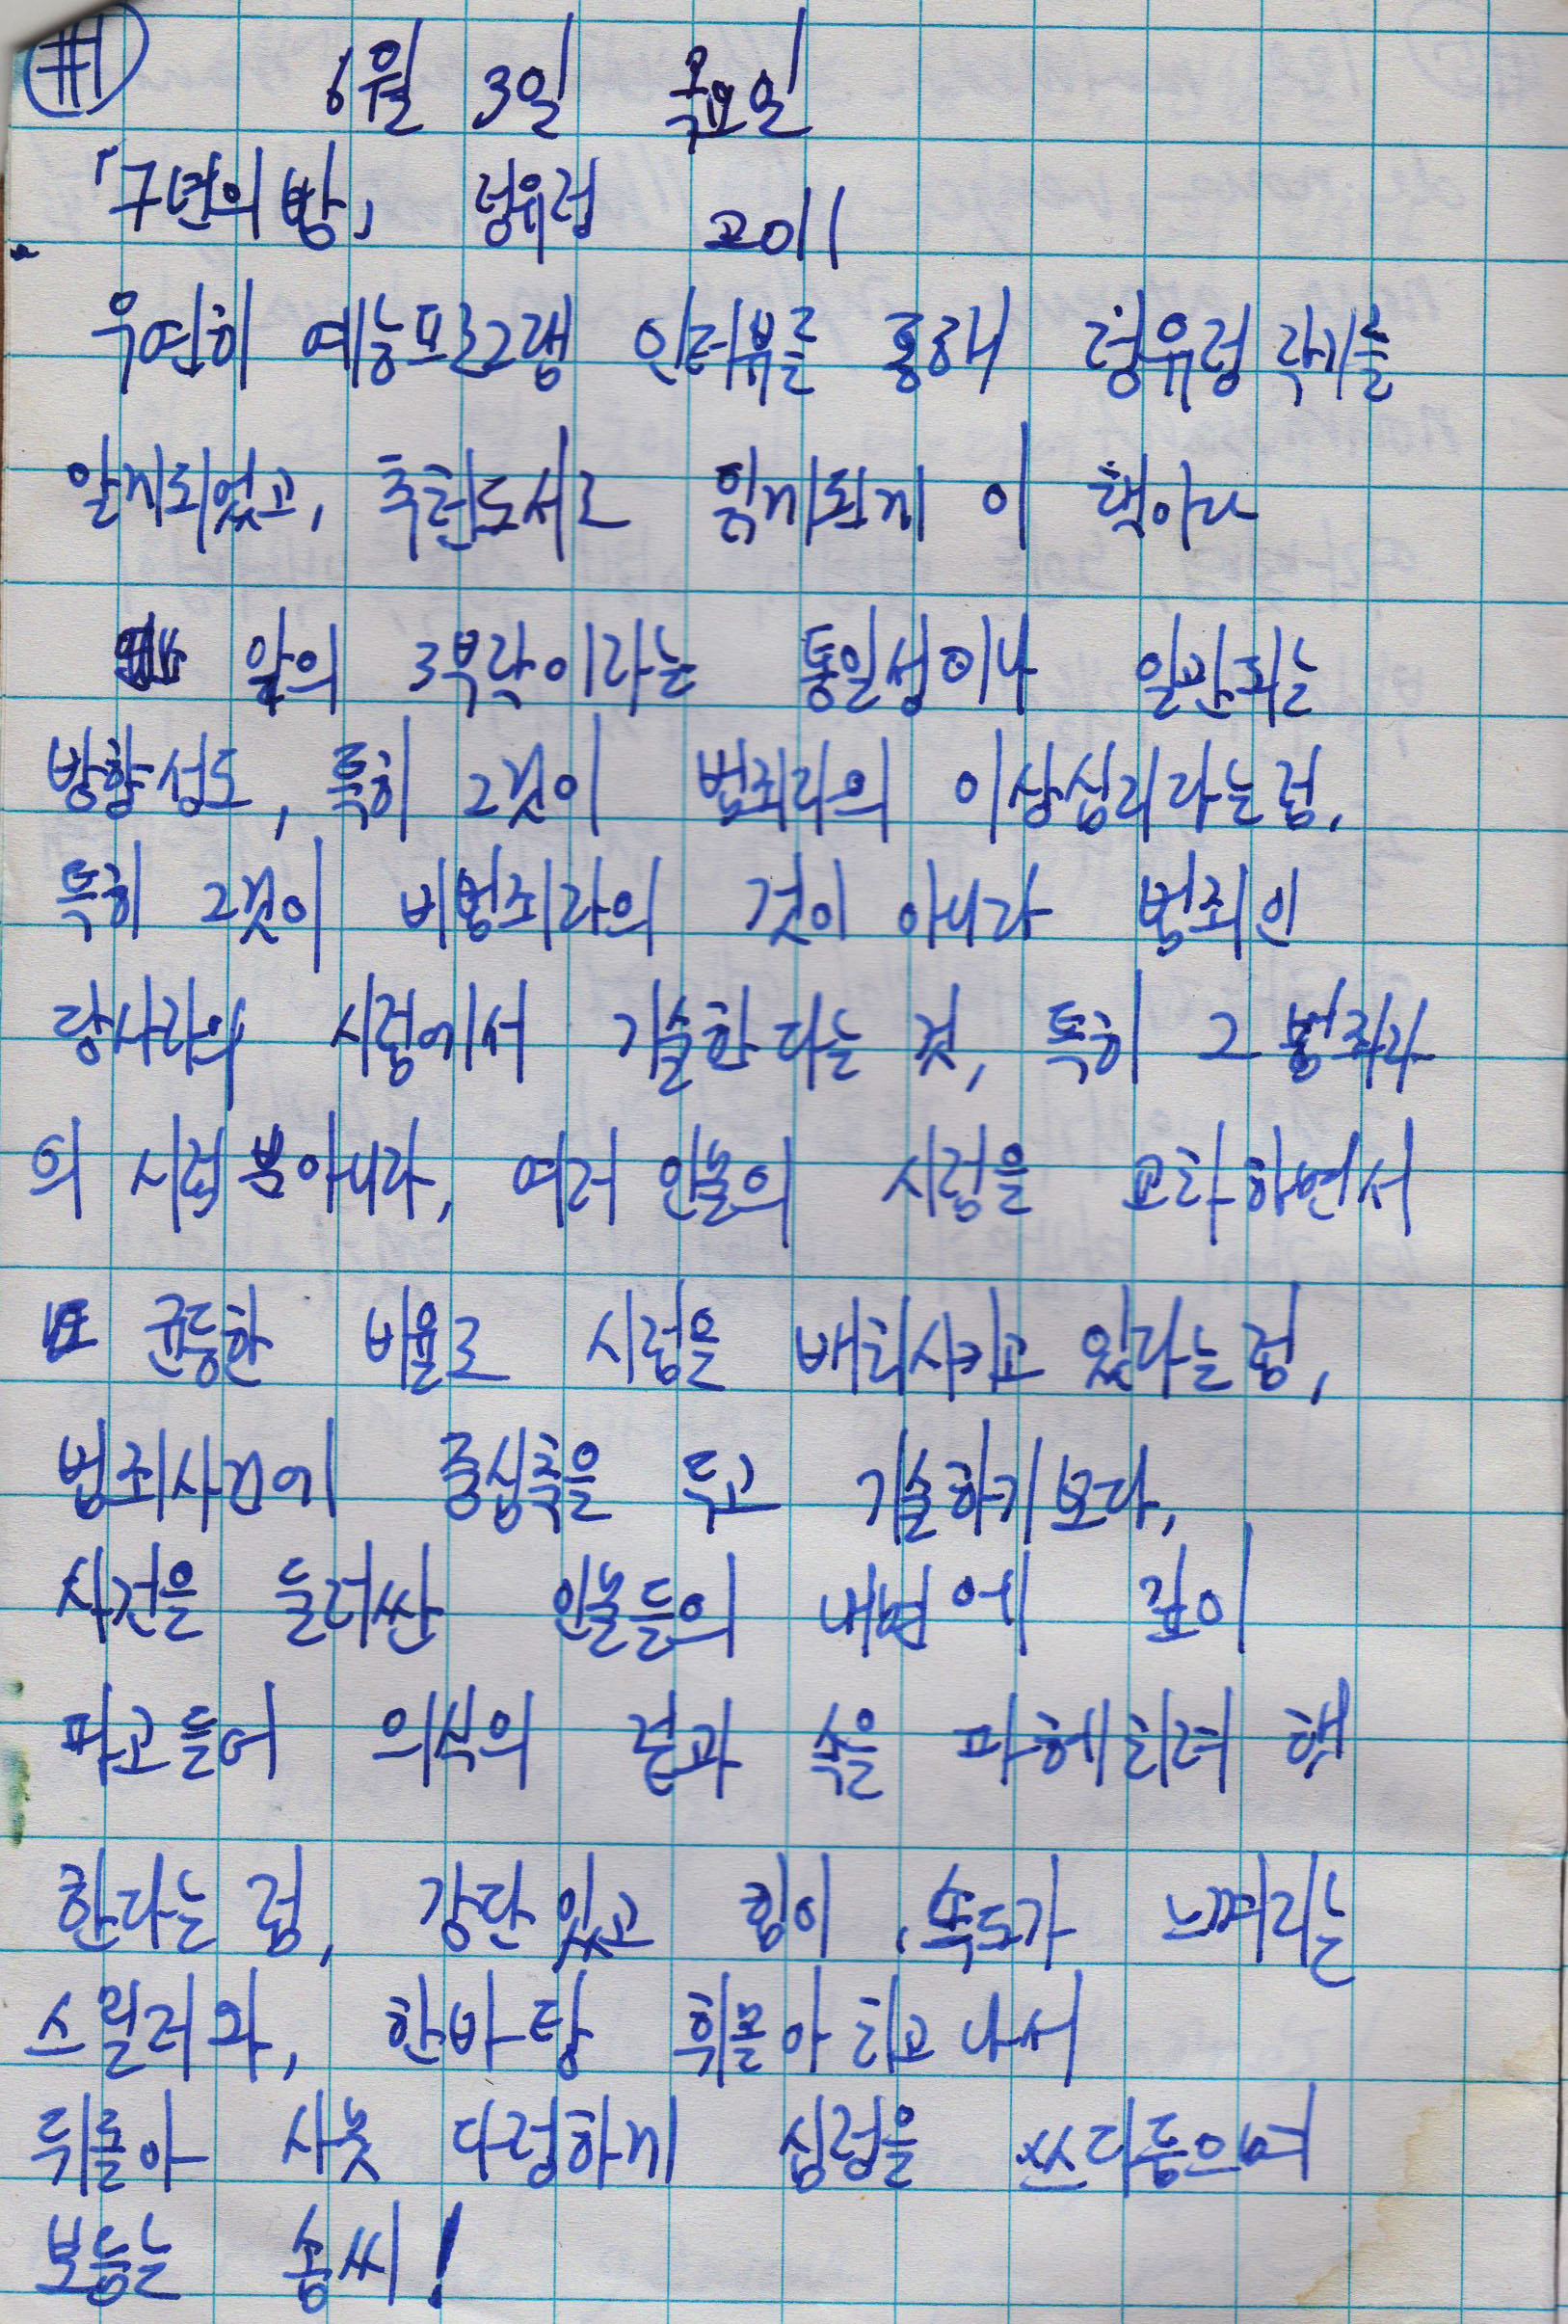 #1
6월 3일 목요일
「7년의 밤」 정유정 2011
우연히 예능프로그램 인터뷰를 통해 정유정 작가를
알게되었고, 추천도서로 읽게되게 이 책이다
악의 3부작이라는 통일성이나 일관되는
방향성도, 특히 그것이 범죄자의 이상심리라는점,
특히 그것이 비범죄자의 것이 아니라 범죄인
당사자의 시점에서 기술한다는 것, 특히 그 범죄자
의 시점 뿐아니라, 여러 인물의 시점을 교차하면서
또 균등한 비율로 시점을 배치시키고 있다는점,
범죄사건에 중심축을 두고 기술하기보다,
사건을 둘러싼 인물들의 내면에 깊이
파고들어 의식의 겉과 속을 파헤치려 했
한다는 점, 강단있고 힘이, 속도가 느껴지는
스릴러와, 한바탕 휘몰아 치고나서
뒤돌아 사뭇 다정하게 심정을 쓰다듬으며
보듬는 솜씨!